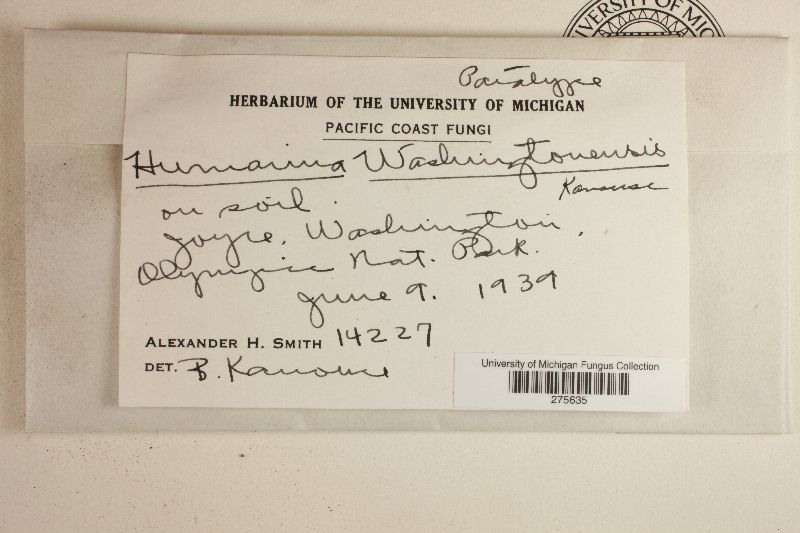 UNIVERSITY OF MICH
Paratype
HERBARIUM OF THE UNIVERSITY OF MICHIGAN
PACIFIC COAST FUNGI
Humarina Washingtonensis
Kanouse
on soil.
Joyce, Washington,
Olympic Nat. Park.
June 9. 1939
ALEXANDER H. SMITH 14227
DET. B. Kanouse
University of Michigan Fungus Collection
275635